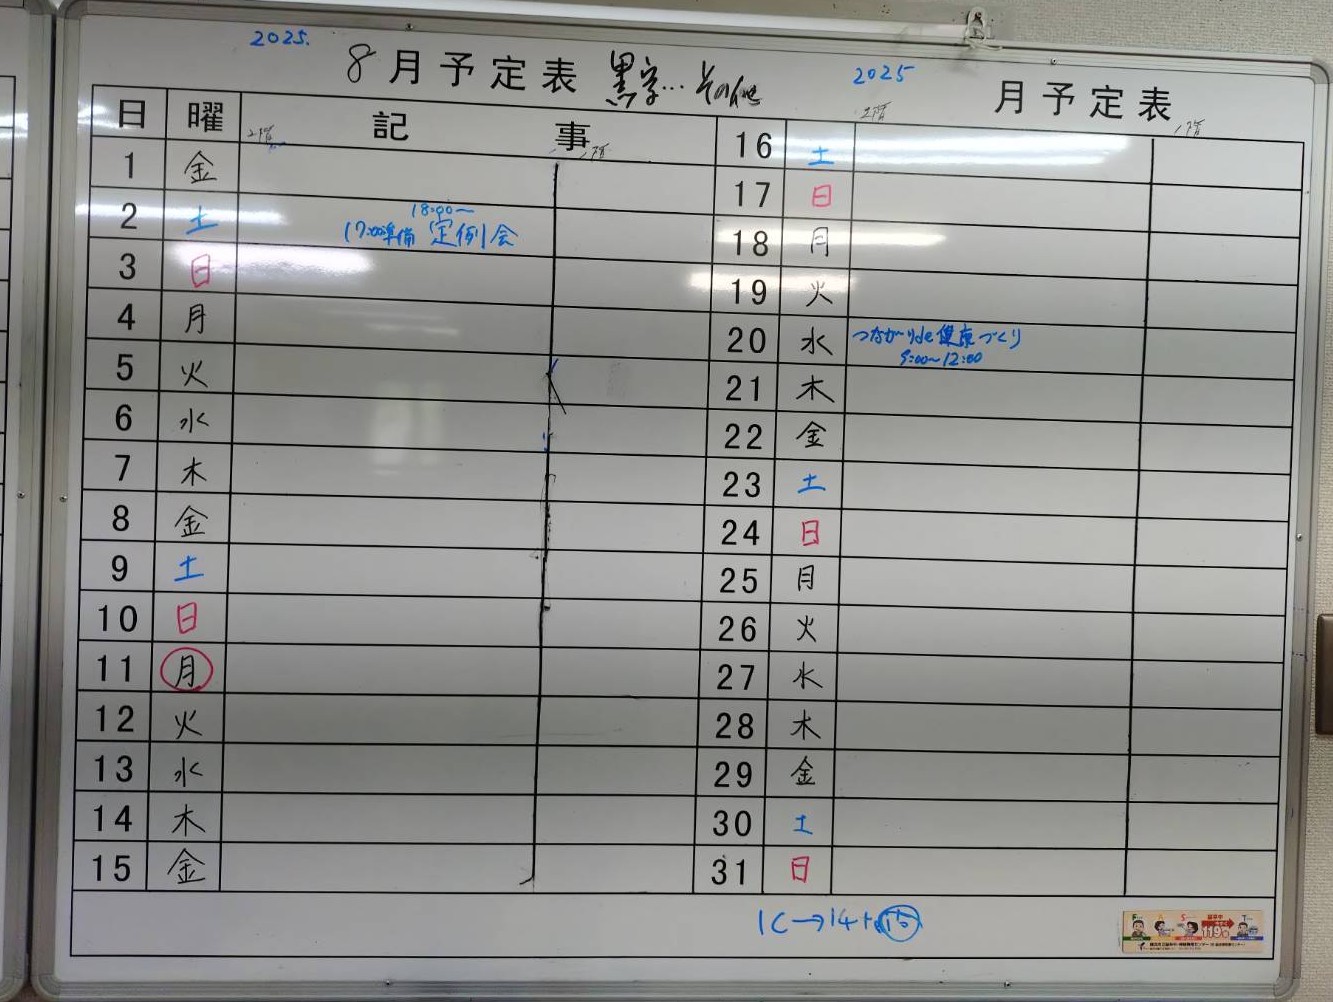 2025.
8月予定表 黒字…その他
日 曜 記事
2階 1階
1 金
2 土 17:00準備 18:00〜 定例会
3 日
4 月
5 火
6 水
7 木
8 金
9 土
10 日
11 月
12 火
13 水
14 木
15 金
2025
月予定表
2階 1階
16 土
17 日
18 月
19 火
20 水 つながりde健康づくり 9:00〜12:00
21 木
22 金
23 土
24 日
25 月
26 火
27 水
28 木
29 金
30 土
31 日
F A S T
119